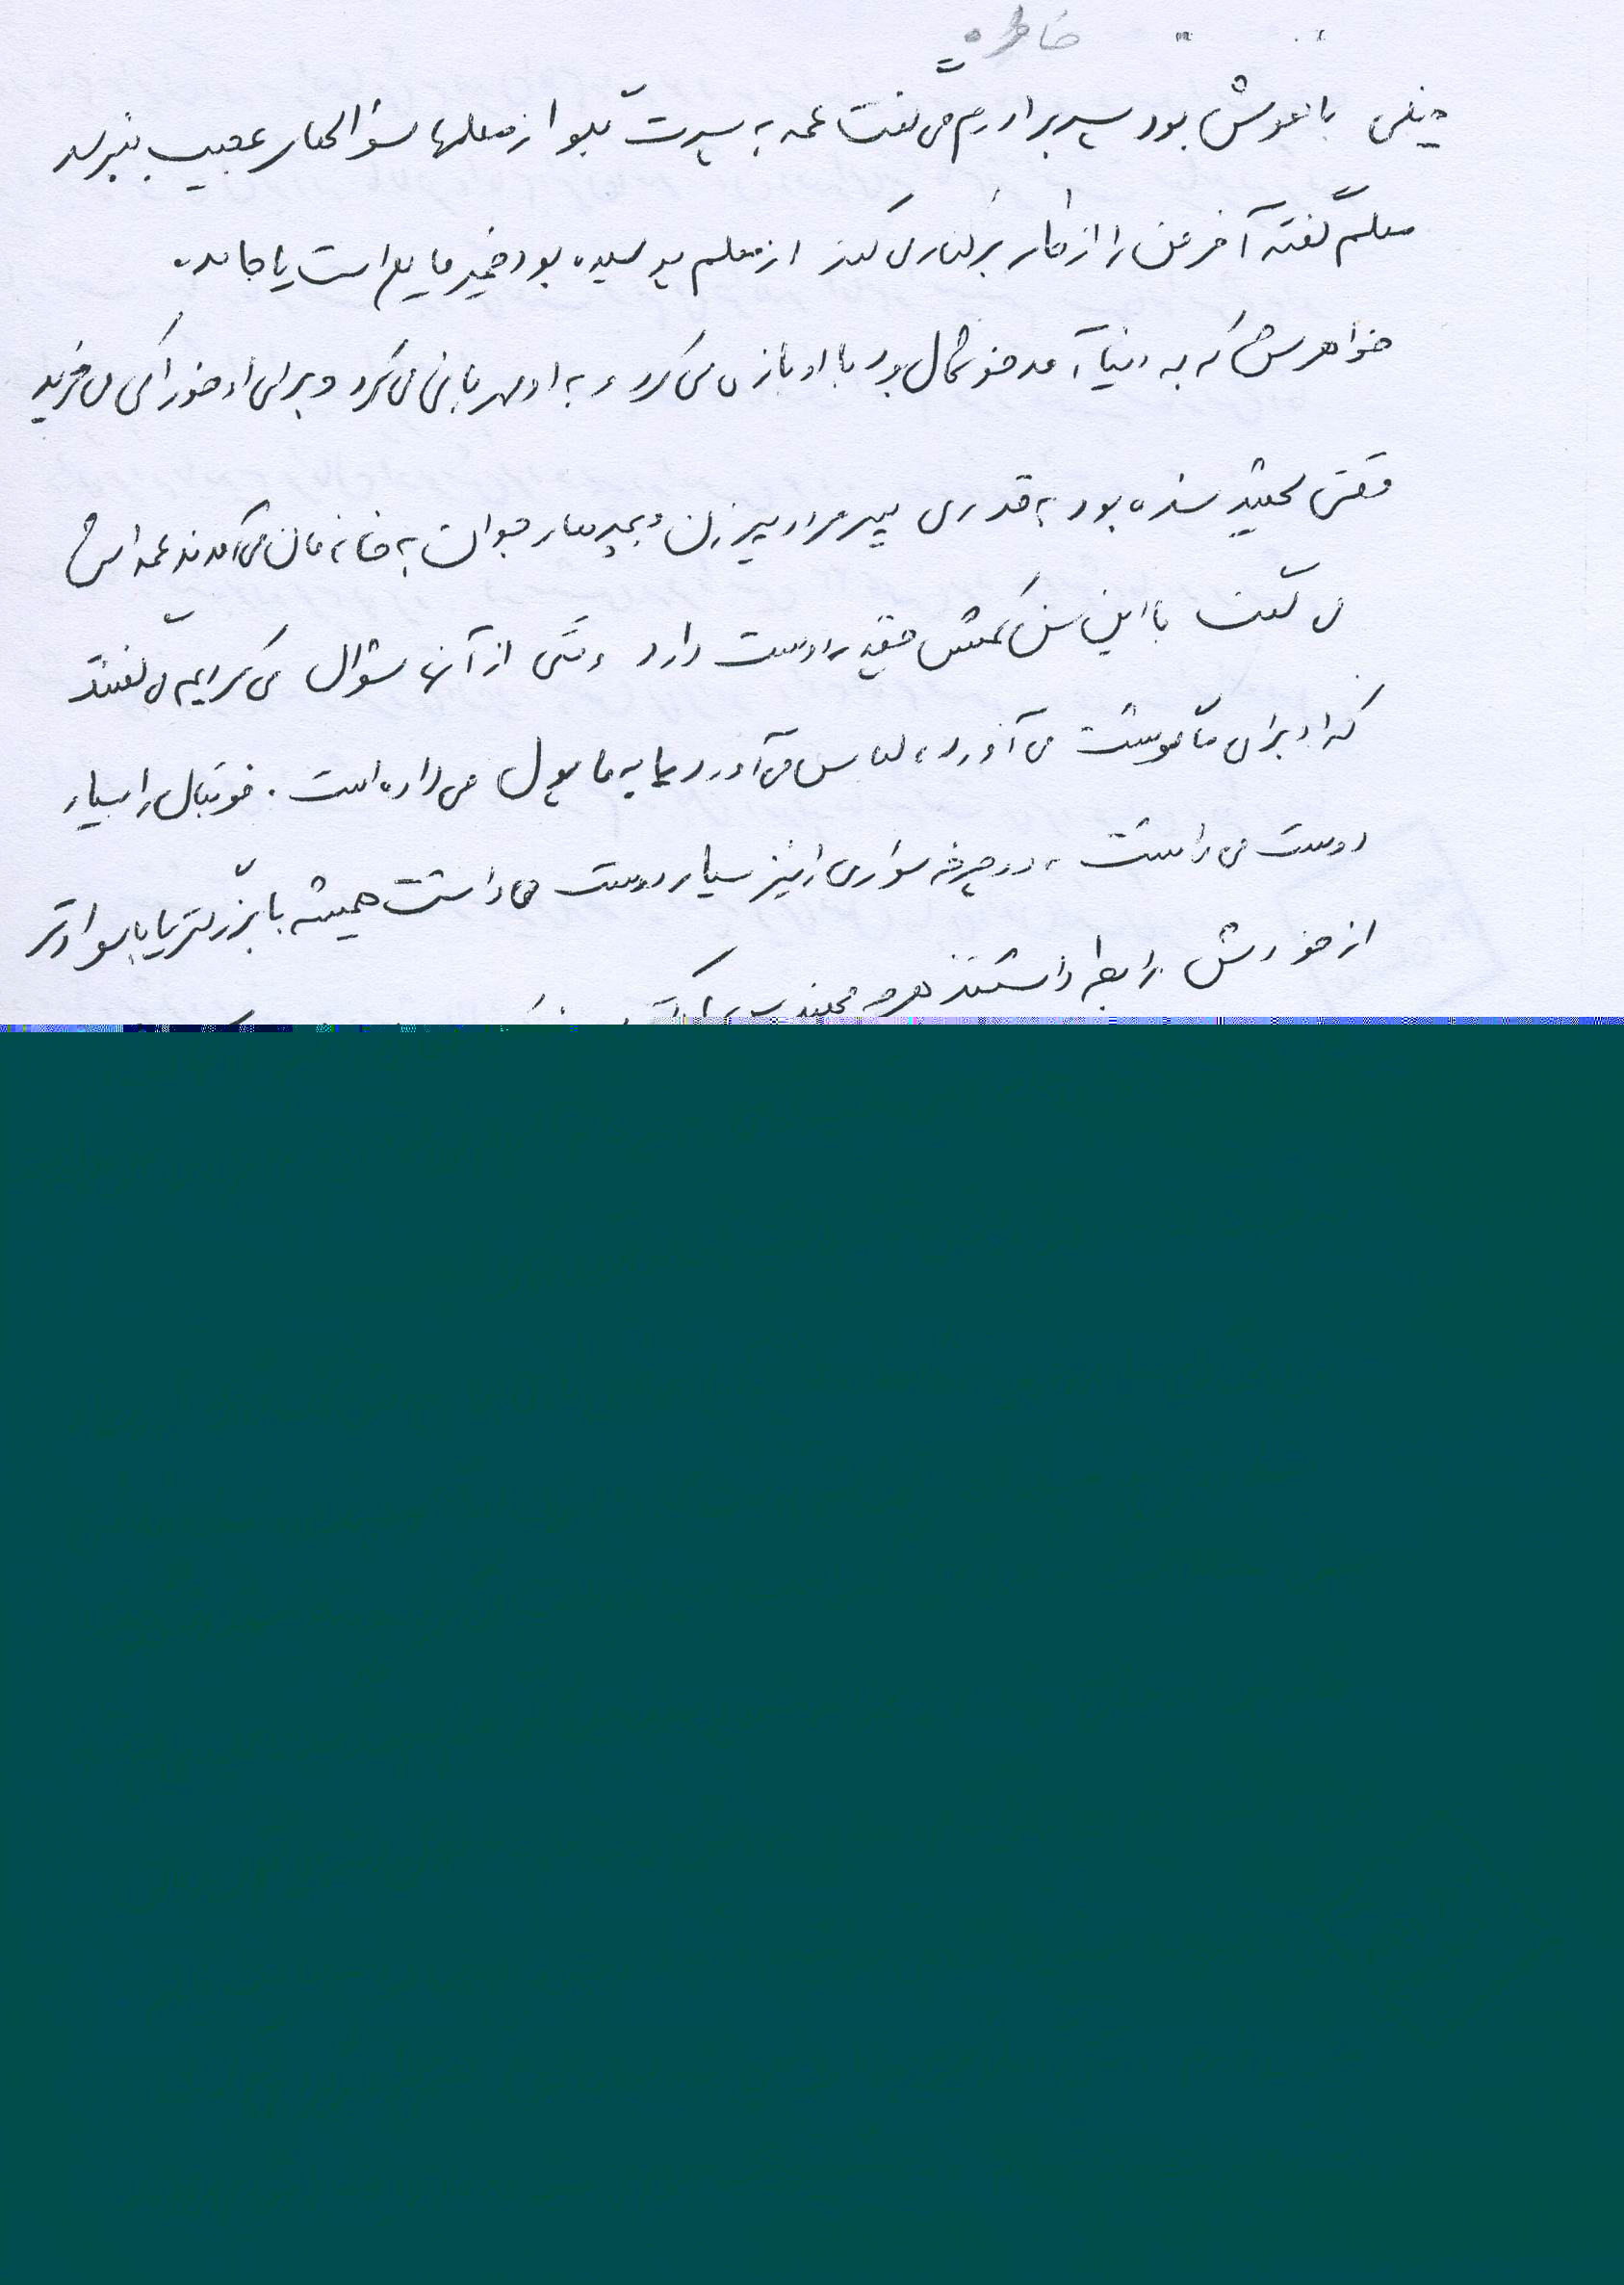 خاطره
خیلی باهوش بود پسر برادرم می گفت عمه به پسرت بگو از معلمها سؤالهای عجیب نپرسد
معلم گفته آخر من را از کار برکنار می کنند از معلم پرسیده بود خمیر مایع است یا جامد
خواهرش که به دنیا آمد خوشحال بود با او بازی می کرد و به او مهربانی می کرد و برای او خوراکی می خرید
وقتی شهید شده بود به قدری پیرمرد و پیرزن و بچه های جوان به خانه مان می آمدند عمه اش
می گفت با این سن کمش چقدر دوست دارد وقتی از آنها سؤال می کردیم می گفتند
که او برای ما گوشت می آورد، لباس می آورد یا به ما پول می داده است. فوتبال را بسیار
دوست می داشت، دوچرخه سواری را نیز بسیار دوست می داشت همیشه با بزرگتر یا باسوادتر
از خودش رابطه داشتند